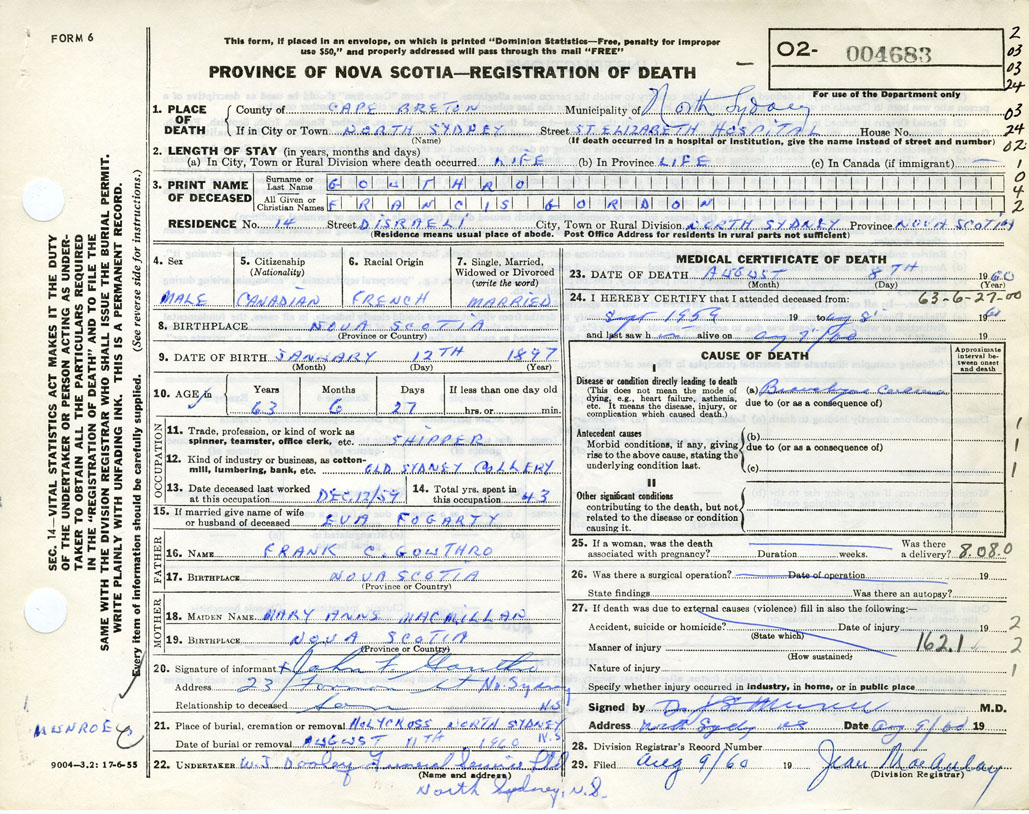 FORM 6
This form, if placed in an envelope, on which is printed "Dominion Statistics—Free, penalty for improper
use $50," and properly addressed will pass through the mail "FREE"
PROVINCE OF NOVA SCOTIA—REGISTRATION OF DEATH
02- 004683
For use of the Department only
2
03
03
24
03
24
02
1
0
4
2
1. PLACE OF DEATH
County of CAPE BRETON Municipality of North Sydney
If in City or Town NORTH SYDNEY Street ST. ELIZABETH HOSPITAL House No.
(Name) (If death occurred in a hospital or institution, give the name instead of street and number)
2. LENGTH OF STAY (in years, months and days)
(a) In City, Town or Rural Division where death occurred LIFE (b) In Province LIFE (c) In Canada (if immigrant) —
3. PRINT NAME OF DECEASED
Surname or Last Name GOUTHRO
All Given or Christian Names FRANCIS GORDON
RESIDENCE No. 14 Street DISRAELI City, Town or Rural Division NORTH SYDNEY Province NOVA SCOTIA
(Residence means usual place of abode. Post Office Address for residents in rural parts not sufficient)
4. Sex
MALE
5. Citizenship
(Nationality)
CANADIAN
6. Racial Origin
FRENCH
7. Single, Married,
Widowed or Divorced
(write the word)
MARRIED
8. BIRTHPLACE NOVA SCOTIA
(Province or Country)
9. DATE OF BIRTH JANUARY 12TH 1897
(Month) (Day) (Year)
10. AGE in
Years Months Days If less than one day old
63 6 27 hrs. or min.
OCCUPATION
11. Trade, profession, or kind of work as
spinner, teamster, office clerk, etc. SHIPPER
12. Kind of industry or business, as cotton-
mill, lumbering, bank, etc. OLD SYDNEY COLLERY
13. Date deceased last worked
at this occupation DEC 12/59
14. Total yrs. spent in
this occupation 43
15. If married give name of wife
or husband of deceased EVA FOGARTY
FATHER
16. NAME FRANK C. GOUTHRO
17. BIRTHPLACE NOVA SCOTIA
(Province or Country)
MOTHER
18. MAIDEN NAME MARY ANNE MACMILLAN
19. BIRTHPLACE NOVA SCOTIA
(Province or Country)
20. Signature of informant John F Gouthro
Address 23 St No. Sydney
Relationship to deceased son N.S
21. Place of burial, cremation or removal HOLYCROSS NORTH SYDNEY N.S
Date of burial or removal AUGUST 11TH 1960
22. UNDERTAKER W.J Dooley Funeral Service Ltd
(Name and address)
North Sydney, N.S.
MEDICAL CERTIFICATE OF DEATH
23. DATE OF DEATH AUGUST 8TH 1960
(Month) (Day) (Year)
24. I HEREBY CERTIFY that I attended deceased from: 63-6-27-00
Sept 1959 19 to aug 8 19 60
and last saw h im alive on aug 7/60 19
CAUSE OF DEATH
Approximate interval between onset and death
I
Disease or condition directly leading to death
(This does not mean the mode of
dying, e.g., heart failure, asthenia,
etc. It means the disease, injury, or
complication which caused death.)
(a)
due to (or as a consequence of)
Antecedent causes
Morbid conditions, if any, giving
rise to the above cause, stating the
underlying condition last.
(b)
due to (or as a consequence of)
(c)
1
1
1
II
Other significant conditions
contributing to the death, but not
related to the disease or condition
causing it.
25. If a woman, was the death
associated with pregnancy? Duration weeks. Was there
a delivery? 8.08.0
26. Was there a surgical operation? Date of operation 19
State findings Was there an autopsy?
27. If death was due to external causes (violence) fill in also the following:—
Accident, suicide or homicide? Date of injury 19 2
(State which)
Manner of injury 162.1 2
(How sustained)
Nature of injury 1
Specify whether injury occurred in industry, in home, or in public place
Signed by M.D.
Address North Sydney NS Date aug 9/60 19
28. Division Registrar's Record Number
29. Filed Aug 9/60 19 Jean MacAulay
(Division Registrar)
SEC. 14—VITAL STATISTICS ACT MAKES IT THE DUTY
OF THE UNDERTAKER OR PERSON ACTING AS UNDER-
TAKER TO OBTAIN ALL THE PARTICULARS REQUIRED
IN THE "REGISTRATION OF DEATH" AND TO FILE THE
SAME WITH THE DIVISION REGISTRAR WHO SHALL ISSUE THE BURIAL PERMIT.
WRITE PLAINLY WITH UNFADING INK. THIS IS A PERMANENT RECORD.
Every item of information should be carefully supplied. (See reverse side for instructions.)
MUNROE
9004—3.2: 17-6-55